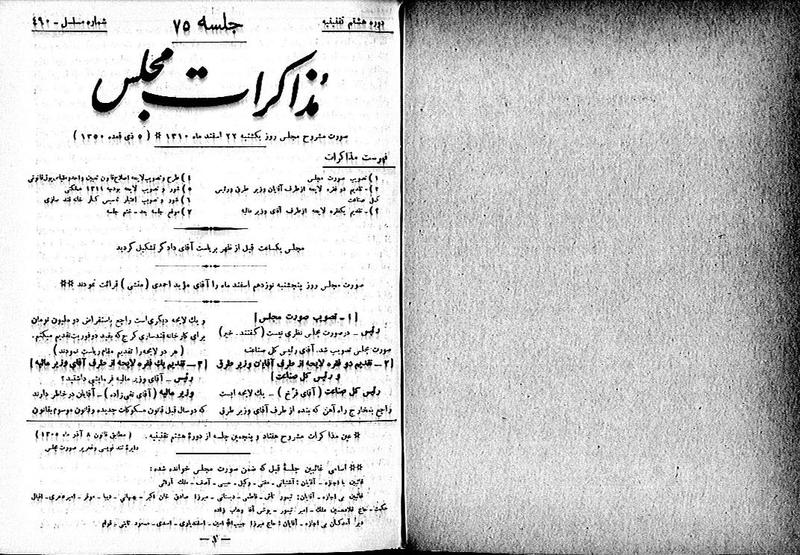 دوره هشتم تقنینیه
جلسه ۷۵
شماره مسلسل - ۴۹۰
مذاکرات مجلس
صورت مشروح مجلس روز یکشنبه ۲۲ اسفند ماه ۱۳۱۰ ⁂ ( ۵ ذی قعده ۱۳۵۰ )
فهرست مذاکرات
۱ ) تصویب صورت مجلس
۲ ) - تقدیم دو فقره لایحه از طرف آقایان وزیر طرق و رئیس
کل صناعت
۳ ) - تقدیم یکفقره لایحه از طرف آقای وزیر مالیه
۴ ) طرح و تصویب لایحه اصلاح قانون تعیین واحد و مقیاس پول قانونی
۵ ) شور و تصویب لایحه بودجه ۱۳۱۱ مملکتی
۶ ) شور و تصویب اعتبار تأسیس کارخانه قند سازی
۷ ) موقع جلسه بعد - ختم جلسه
مجلس یکساعت قبل از ظهر بریاست آقای دادگر تشکیل گردید
صورت مجلس روز پنجشنبه نوزدهم اسفند ماه را آقای مؤید احمدی ( منشی ) قرائت نمودند ⁂⁂
[ ۱ - تصویب صورت مجلس ]
رئیس - در صورت مجلس نظری نیست ( گفتند . خیر )
صورت مجلس تصویب شد. آقای رئیس کل صناعت
[ ۲ - تقدیم دو فقره لایحه از طرف آقایان وزیر طرق
و رئیس کل صناعت ]
رئیس کل صناعت ( آقای فرخ ) - یك لایحه ایست
راجع بمخارج راه آهن که بنده از طرف آقای وزیر طرق
و یك لایحه دیگری است راجع باستقراض دو ملیون تومان
برای کارخانه قندسازی کرج که بقید دو فوریت تقدیم میکنم.
( هر دو لایحه را تقدیم مقام ریاست نمودند )
[ ۳ - تقدیم یك فقره لایحه از طرف آقای وزیر مالیه ]
رئیس - آقای وزیر مالیه فرمایشی داشتید ؟
وزیر مالیه ( آقای تقی زاده ) - آقایان در خاطر دارند
که دو سال قبل قانون مسکوکات جدیده و قانون دوسوم بقانون
⁂ عین مذاکرات مشروح هفتاد و پنجمین جلسه از دورهٔ هشتم تقنینیه .
( مطابق قانون ۸ آذر ماه ۱۳۰۵ )
دایرهٔ تند نویسی و تحریر صورت مجلس
⁂⁂ اسامی غائبین جلسهٔ قبل که ضمن صورت مجلس خوانده شده :
غائبین با اجازه - آقایان : آشتیانی - مفتی - وکیل - حبیبی - آصف - ملك آرائی
غائبین بی اجازه - آقایان : تیمور تاش - فاطمی - دبستانی - میرزا صادق خان اکبر - بهبهانی - دیبا - موقر - امیرعامری - اقبال
حکمت - حاج غلامحسین ملك - امیر تیمور - یونس آقا وهاب زاده
دیر آمدگان بی اجازه - آقایان : حاج میرزا حبیب الله امین - اسفندیاری - اسدی - مسعود ثابتی - قوام